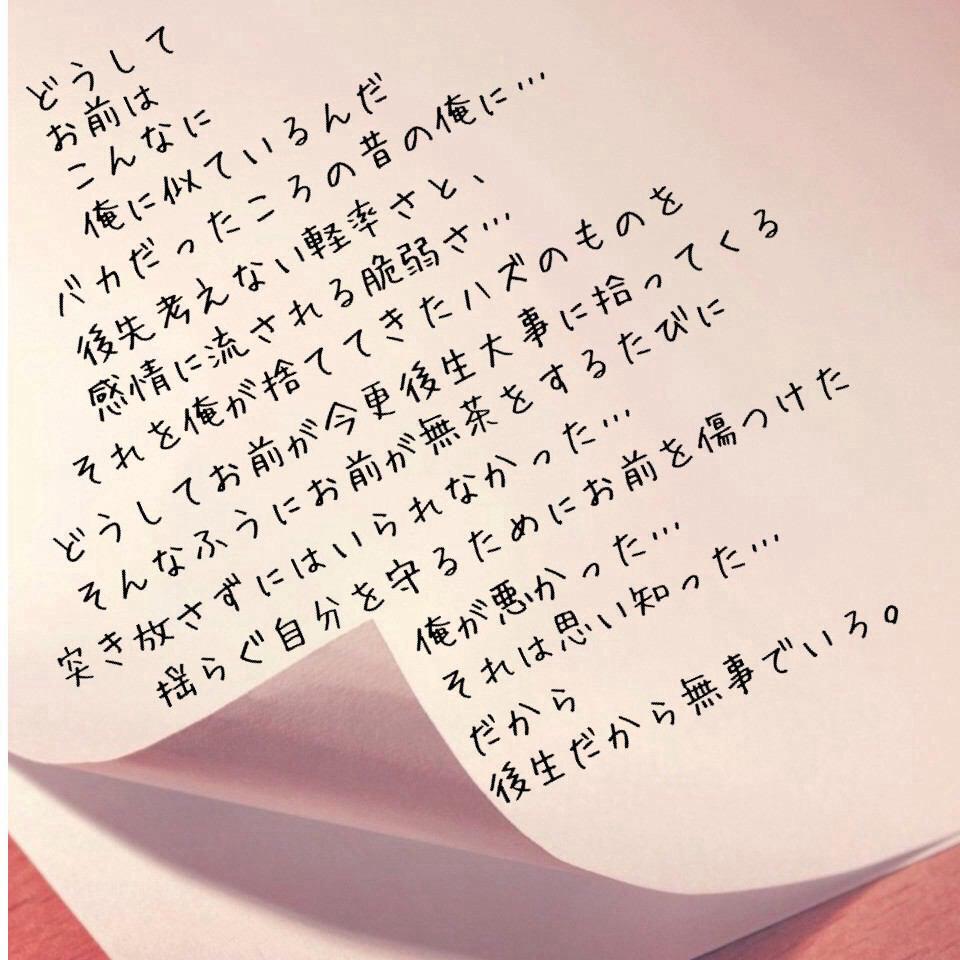 どうして
お前は
こんなに
俺に似ているんだ
バカだったころの昔の俺に…
後先考えない軽率さと、
感情に流される脆弱さ…
それを俺が捨ててきたハズのものを
どうしてお前が今更後生大事に拾ってくる
そんなふうにお前が無茶をするたびに
突き放さずにはいられなかった…
揺らぐ自分を守るためにお前を傷つけた
俺が悪かった…
それは思い知った…
だから
後生だから無事でいろ。